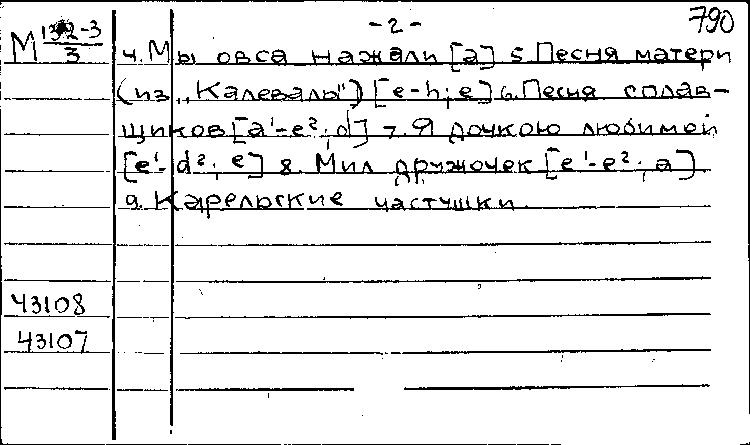 -2-
790
М 132-3/3
4. Мы овса нажали [a] 5. Песня матери
(из „Калевалы") [e-h; e] 6. Песня сплав-
щиков [a¹-e²; d] 7. Я дочкою любимой
[e¹-d²; e] 8. Мил дружочек [e¹-e²; a]
9. Карельские частушки.
43108
43107